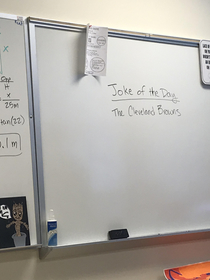 Joke of the Day
The Cleveland Browns
H
x
25m
tan(22)